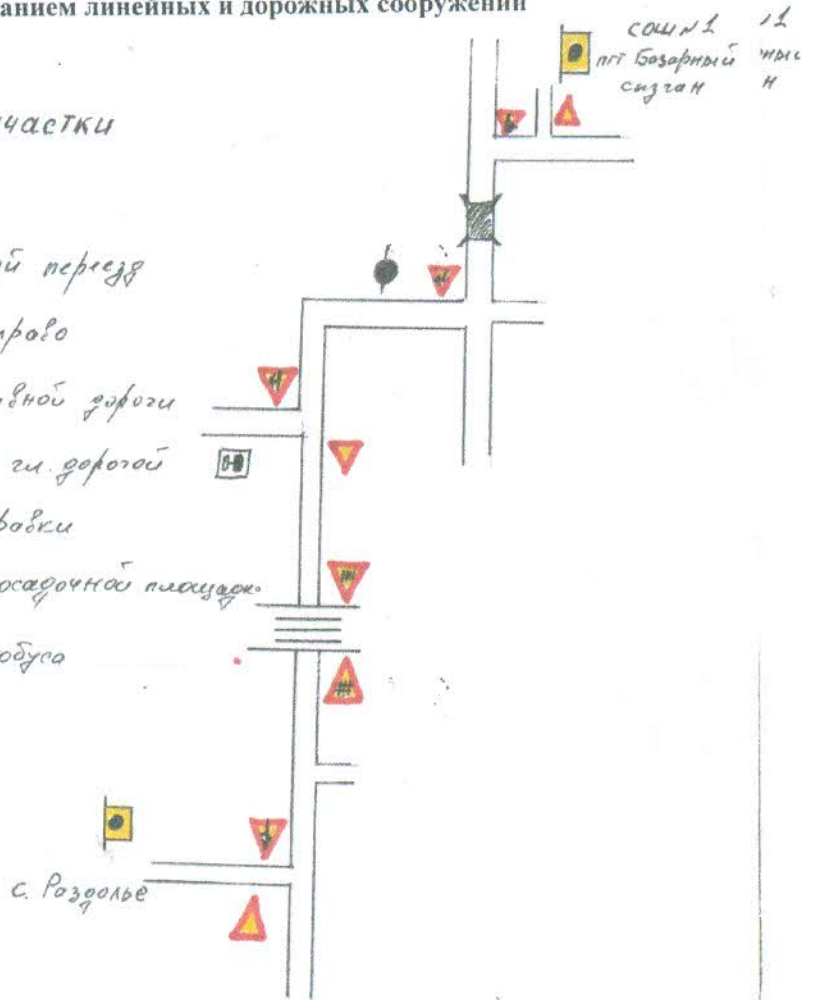 анием линейных и дорожных сооружений
сош №1
пгт Базарный
сызган
частки
й переезд
право
вной дороги
гл. дорогой
равки
осадочной площадк
обуса
с. Раздолье